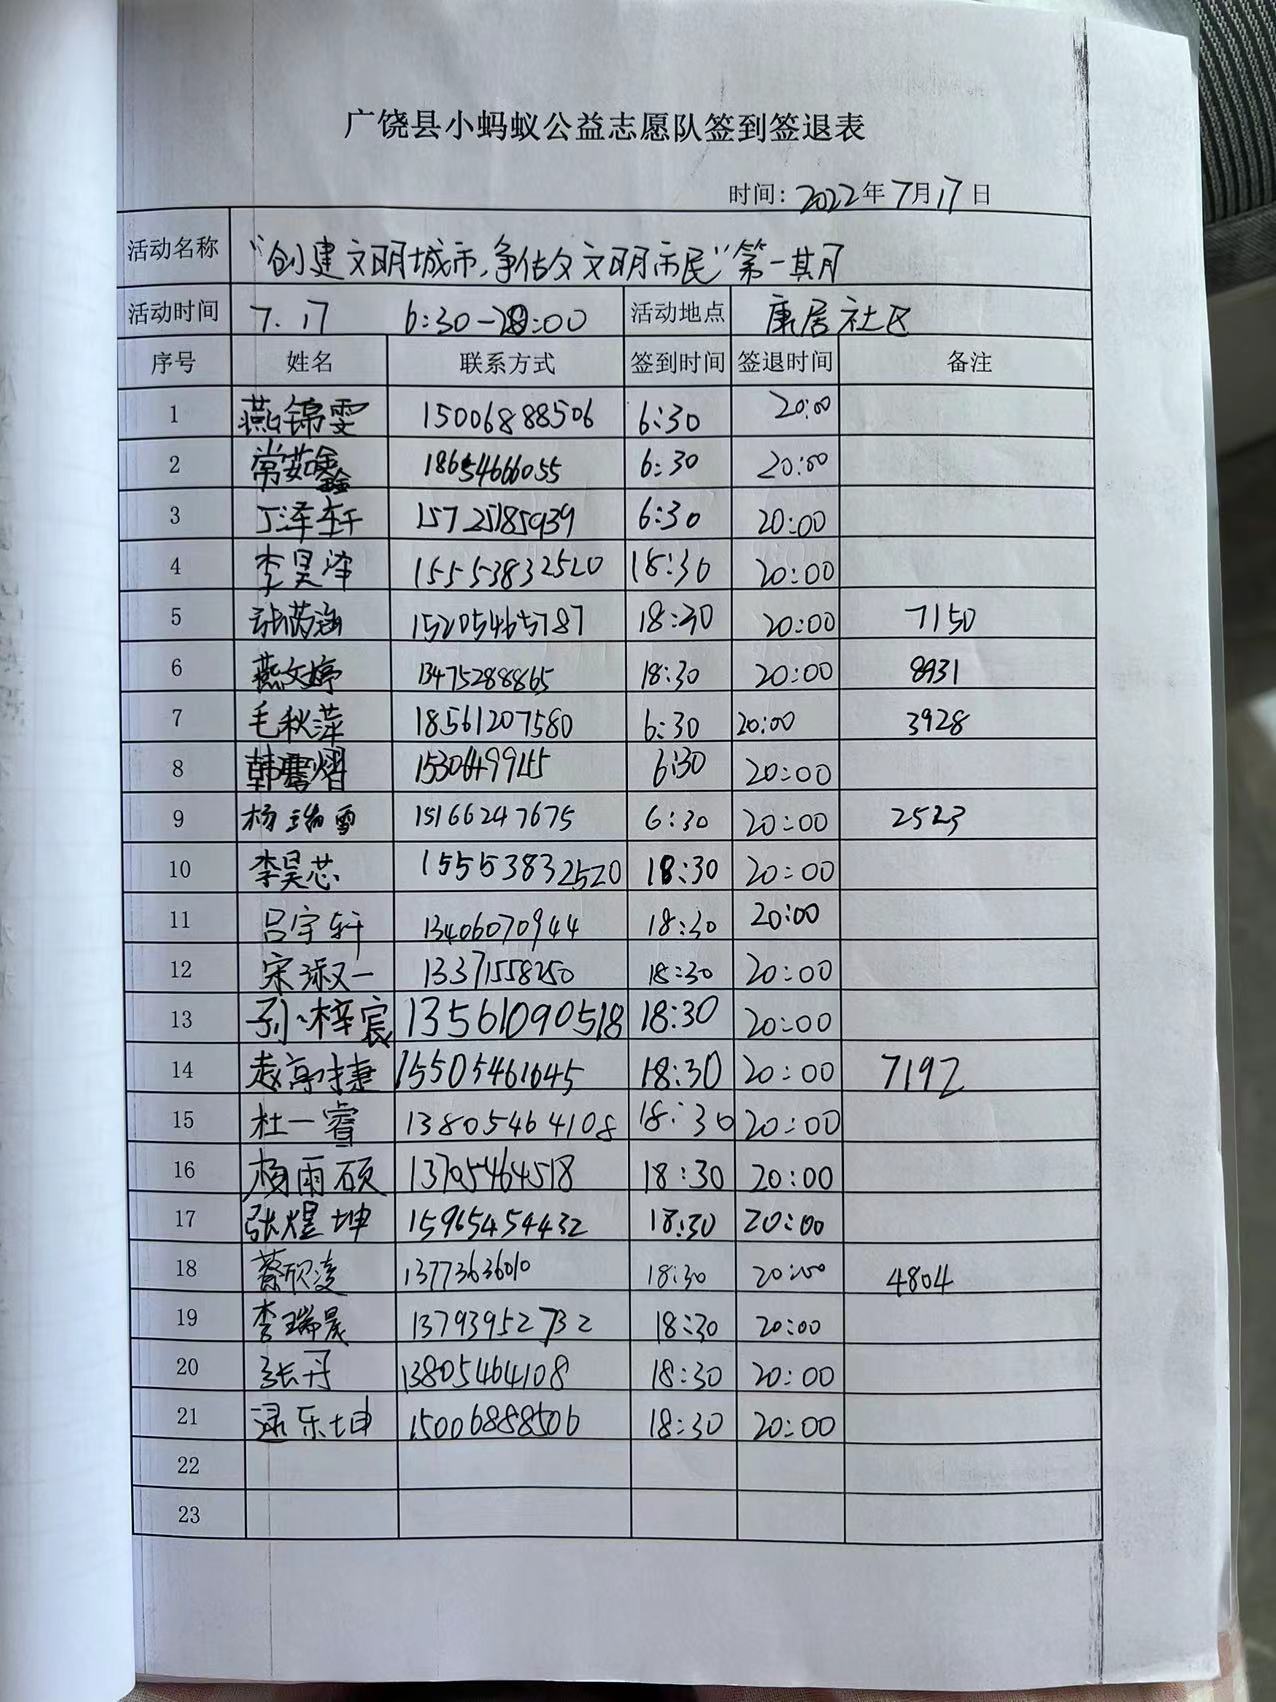 广饶县小蚂蚁公益志愿队签到签退表
时间：2022年7月17日
活动名称 “创建文明城市，争做文明市民”第一期
活动时间 7.17 6:30-20:00 活动地点 康居社区
序号 姓名 联系方式 签到时间 签退时间 备注
1 燕锦雯 15006888506 6:30 20:00
2 常茹鑫 18654666055 6:30 20:00
3 丁泽轩 15725185939 6:30 20:00
4 李昊泽 15553832520 18:30 20:00
5 张芮涵 15205465787 18:30 20:00 7150
6 燕文婷 13475288865 18:30 20:00 8931
7 毛秋萍 18561207580 6:30 20:00 3928
8 韩熠 6:30 20:00
9 杨瑞雪 15166247675 6:30 20:00 2523
10 李昊芯 15553832520 18:30 20:00
11 吕宇轩 13406070944 18:30 20:00
12 宋淑一 13371558250 18:30 20:00
13 孙梓宸 13561090518 18:30 20:00
14 赵高捷 15505461645 18:30 20:00 7192
15 杜一睿 13805464108 18:30 20:00
16 杨雨硕 13705464518 18:30 20:00
17 张煜坤 15965454432 18:30 20:00
18 蔡欣凌 13773636010 18:30 20:00 4804
19 李瑞晟 13793952732 18:30 20:00
20 张丹 13805464108 18:30 20:00
21 逯乐坤 15006888506 18:30 20:00
22
23